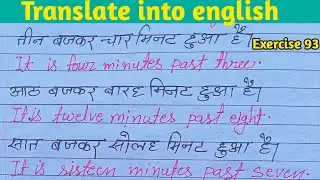 Translate into english
तीन बजकर चार मिनट हुआ है।
Exercise 93
It is four minutes past three.
आठ बजकर बारह मिनट हुआ है।
It is twelve minutes past eight.
सात बजकर सोलह मिनट हुआ है।
It is sisteen minutes past seven.